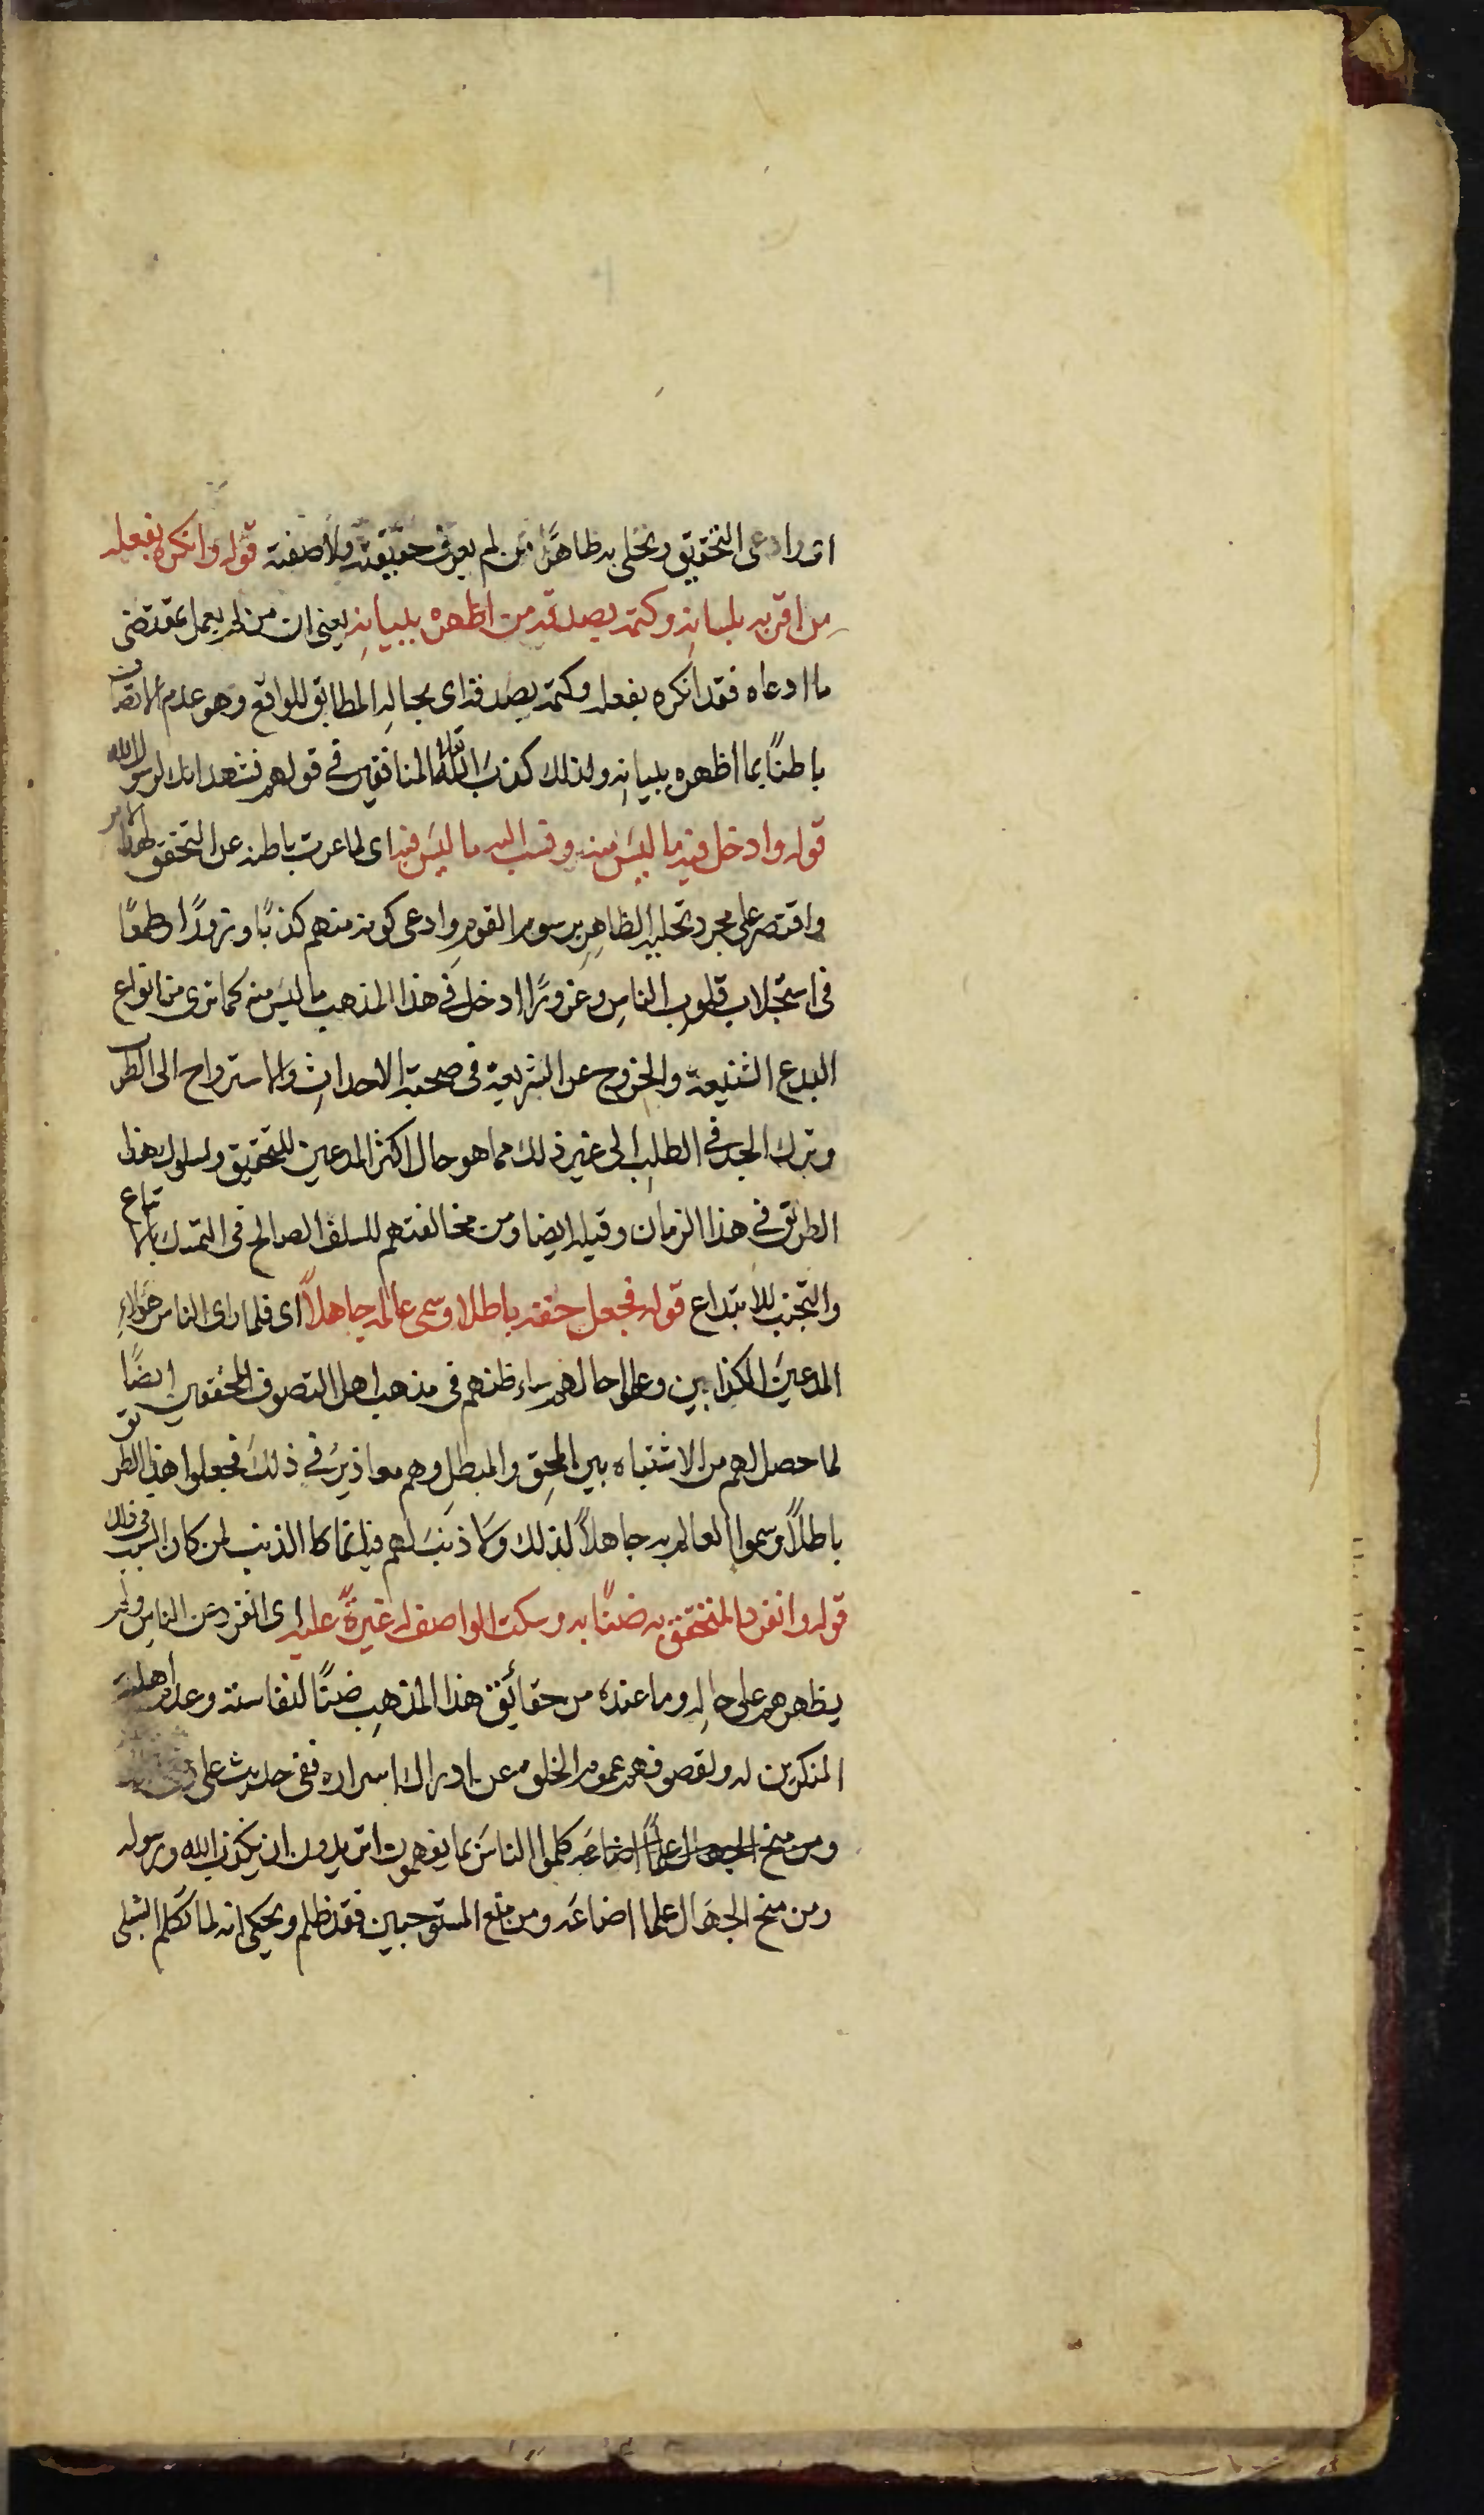 اى وادعى التحقيق وتحلى به ظاهرًا من لم يعرف حقيقته ولا صفته قوله وانكره بفعله
من اقرّ به بلسانه وكتمه بصدقه من اظهره ببيانه يعنى ان من لم يعمل بمقتضى
ما ادعاه فقد انكره بفعله وكتمه بصدقه اى بحاله المطابق للواقع وهو عدم الاتصاف
باطنًا بما اظهره ببيانه ولذلك كذب الله تعالى المنافقين فى قولهم نشهد انك لرسول الله
قوله وادخل فيه ما ليس منه ونسب اليه ما ليس فيه اى لما عرت باطنه عن التحقق لهذا الامر
واقتصر على مجرد تحلية الظاهر برسوم القوم وادعى كونه منهم كذبًا وتزودًا وطمعًا
فى استجلاب قلوب الناس وغرورًا ادخل فى هذا المذهب ما ليس منه كما ترى من انواع
البدع الشنيعة والخروج عن الشريعة فى صحبة الاحداث والاسترواح الى الطرب
وترك الجد فى الطلب الى غير ذلك مما هو حال اكثر المدعين للتحقيق ولسلوك هذا
الطريق فى هذا الزمان وقبله ايضا ومن مخالفتهم للسلف الصالح فى التمسك بالاتباع
والتجنب للابتداع قوله فجعل حقه باطلا وسمى عالمه جاهلاً اى فلما راى الناس هؤلاء
المدعين الكذابين وعلموا حالهم ساء ظنهم فى مذهب اهل التصوف المحققين ايضًا
لما حصل لهم من الاشتباه بين المحق والمبطل وهم معاذير فى ذلك فجعلوا هذا الطريق
باطلاً وسموا العالم به جاهلاً لذلك ولا ذنب لهم فيه انما كان الذنب لمن كان السبب فى ذلك
قوله وانفرد المتحقق به ضنًا به وسكت الواصف له غيرةً عليه اى انفرد عن الناس ولم
يظهرهم على حاله وما عنده من حقائق هذا المذهب ضنًا لنفاسته وعدم اهلية
المنكرين له ولقصور فهم عموم الخلق عن ادراك اسراره ففى حديث على
ومن منح الجهال علمًا اضاعه كلموا الناس بما يفهمون اتريدون ان يكذب الله ورسوله
ومن منح الجهال علما اضاعه ومن منع المستوجبين فقد ظلم ويحكى انه لما تكلم الشبلى